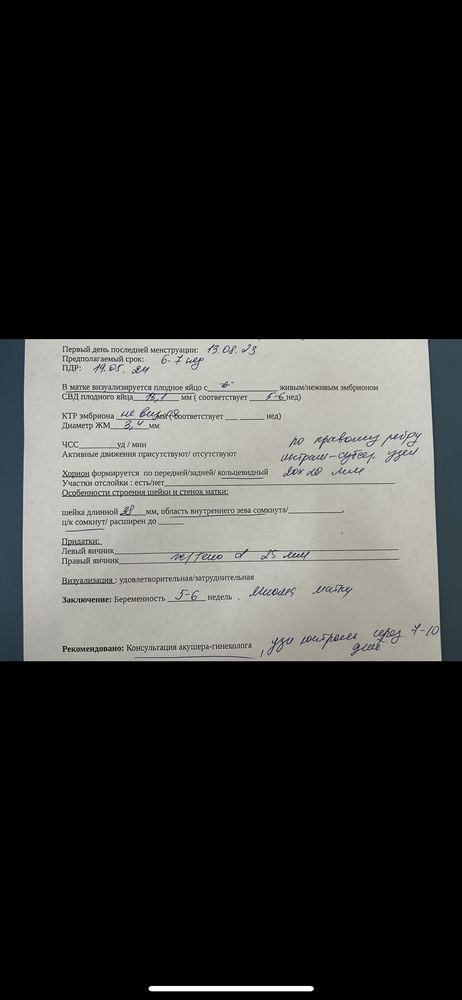 Первый день последней менструации: 13.08.23
Предполагаемый срок: 6-7 нед
ПДР: 19.05.24
В матке визуализируется плодное яйцо с живым/неживым эмбрионом
СВД плодного яйца 15,1 мм ( соответствует 5-6 нед)
КТР эмбриона не визуал. мм ( соответствует нед)
Диаметр ЖМ 3,4 мм
ЧСС уд / мин
Активные движения присутствуют/ отсутствуют
по правому ребру
интрам-субсер. узел
20х20 мм
Хорион формируется по передней/задней/ кольцевидный
Участки отслойки : есть/нет
Особенности строения шейки и стенок матки:
шейка длинной 38 мм, область внутреннего зева сомкнута/ ,
ц/к сомкнут/ расширен до
Придатки:
Левый яичник
Правый яичник ж/тело d 25 мм
Визуализация : удовлетворительная/затруднительная
Заключение: Беременность 5-6 недель , Миома матки
Рекомендовано: Консультация акушера-гинеколога , узи контроль через 7-10
дней